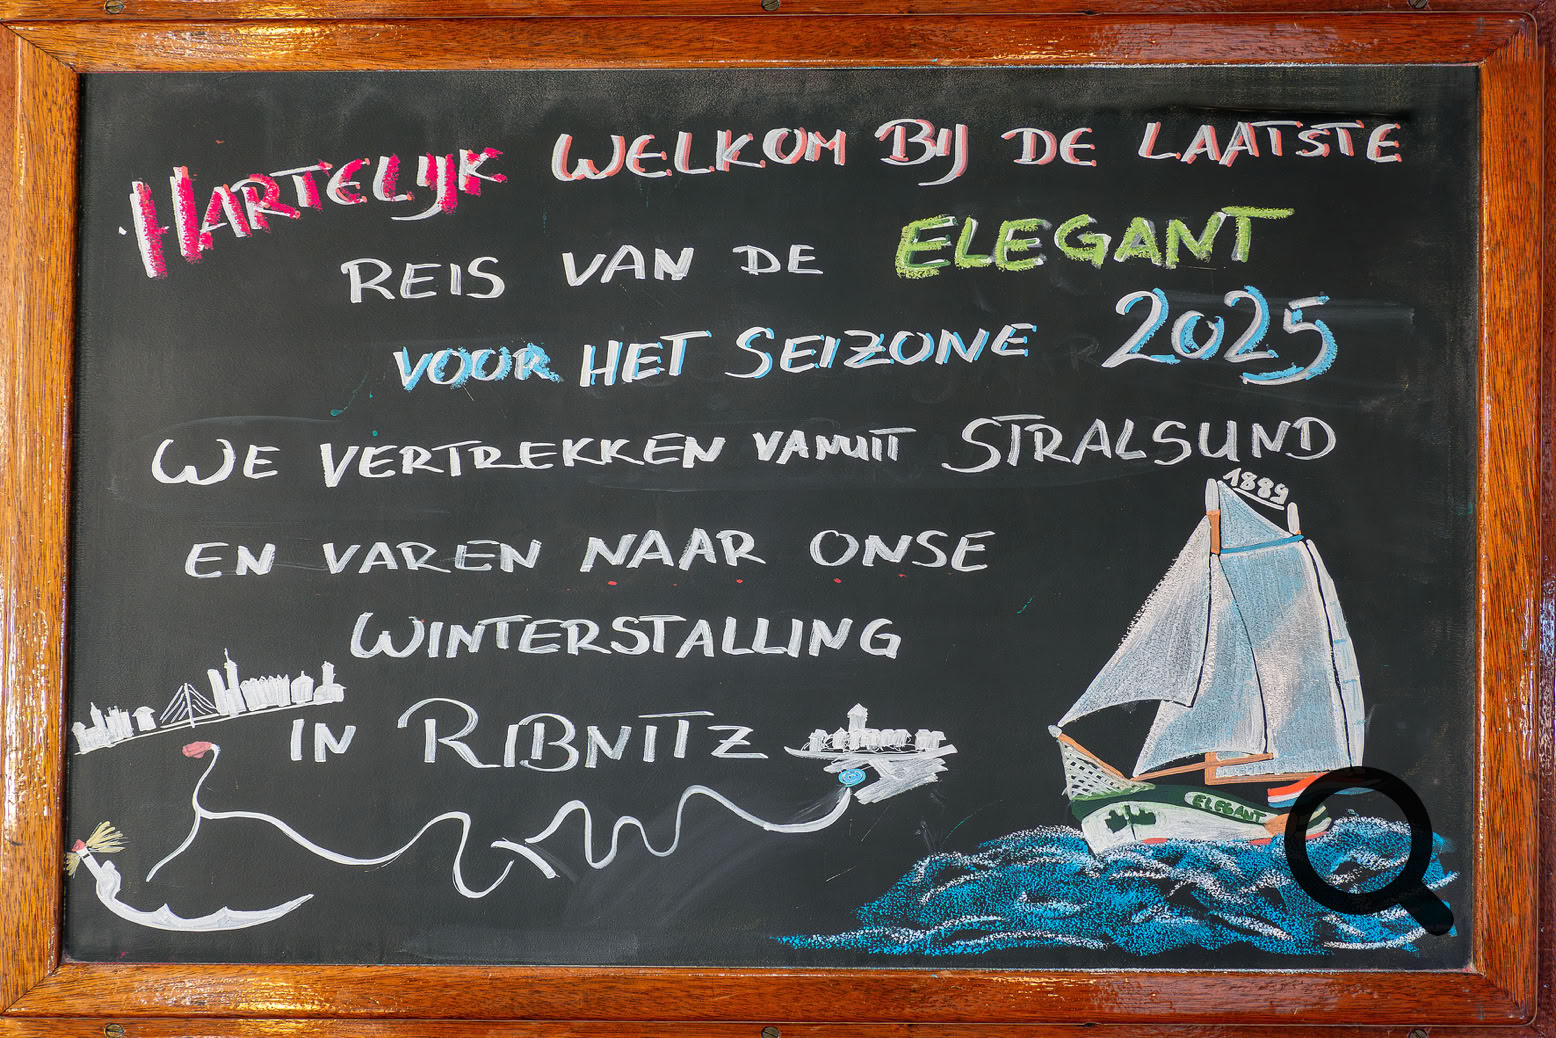 HARTELIJK WELKOM BIJ DE LAATSTE
REIS VAN DE ELEGANT
VOOR HET SEIZONE 2025
WE VERTREKKEN VANUIT STRALSUND
1889
EN VAREN NAAR ONSE
WINTERSTALLING
IN RIBNITZ
ELEGANT